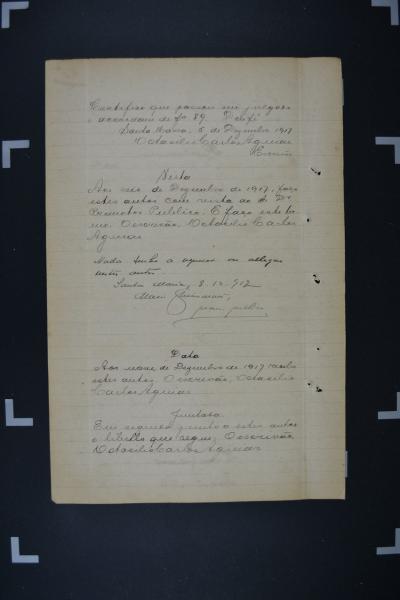 Certifico que passou em julgado
o accordam de fs 89. Dou fé
Santa Maria, 5 de Dezembro 1917
Octacilio Carlos Aguiar
Escrivão
Vista
Aos seis de Dezembro de 1917, faço
estes autos com vista ao Dr
Promotor Publico. E faço este ter
mo. O escrivão, Octacilio Carlos
Aguiar
Nada tenho a oppor ou allegar
nestes autos.
Santa Maria, 8-12-912
Data
Aos nove de Dezembro de 1917 recebi
estes autos. O escrivão, Octacilio
Carlos Aguiar
Juntada
Em seguida junto a estes autos
o libello que segue; O escrivão,
Octacilio Carlos Aguiar